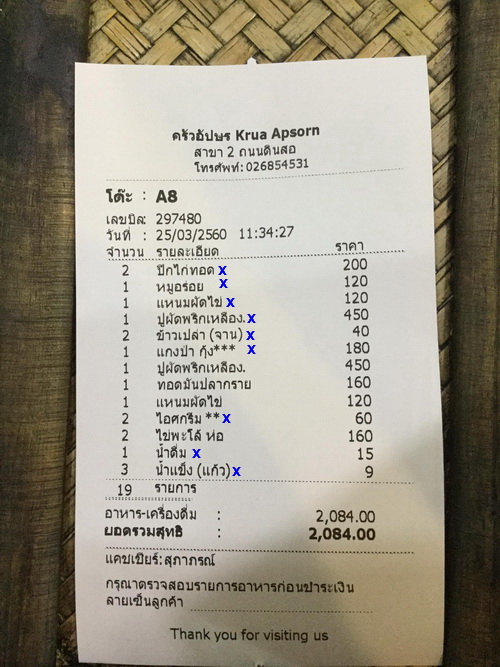 ครัวอัปษร Krua Apsorn
สาขา 2 ถนนดินสอ
โทรศัพท์: 026854531
โต๊ะ : A8
เลขบิล: 297480
วันที่ : 25/03/2560 11:34:27
จำนวน รายละเอียด ราคา
2 ปีกไก่ทอด x 200
1 หมูอร่อย x 120
1 แหนมผัดไข่ x 120
1 ปูผัดพริกเหลือง. x 450
2 ข้าวเปล่า (จาน) x 40
1 แกงป่า กุ้ง*** x 180
1 ปูผัดพริกเหลือง. 450
1 ทอดมันปลากราย 160
1 แหนมผัดไข่ 120
2 ไอศกรีม ** x 60
2 ไข่พะโล้ ห่อ 160
1 น้ำดื่ม x 15
3 น้ำแข็ง (แก้ว) x 9
19 รายการ
อาหาร-เครื่องดื่ม : 2,084.00
ยอดรวมสุทธิ : 2,084.00
แคชเชียร์:สุภาภรณ์
กรุณาตรวจสอบรายการอาหารก่อนชำระเงิน
ลายเซ็นลูกค้า
Thank you for visiting us